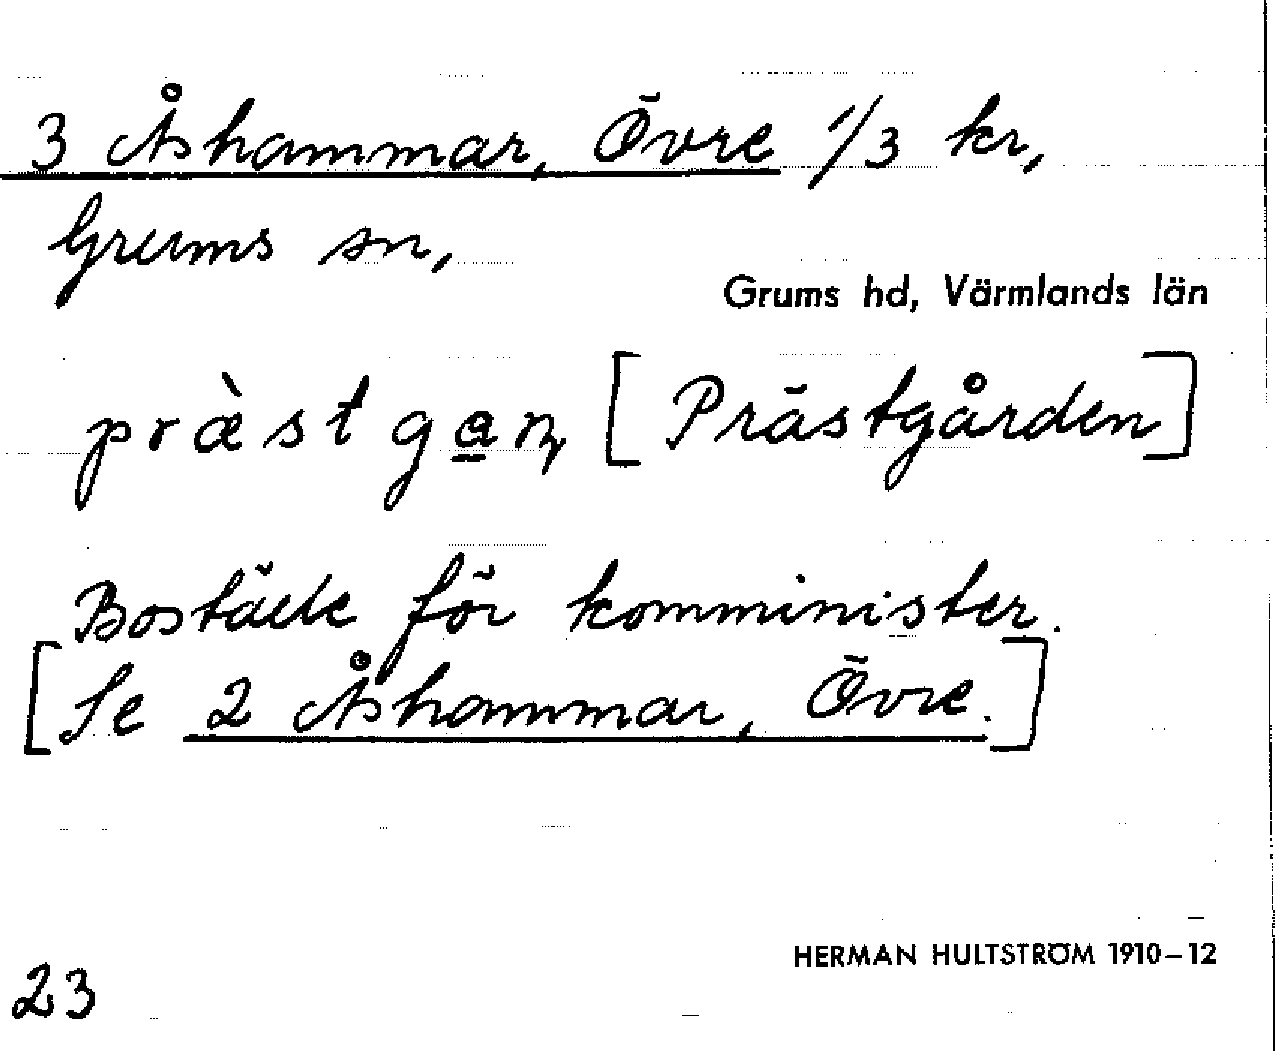 3 Åshammar, Övre 1/3 kr,
Grums sn,
Grums hd, Värmlands län
præ̀stga̠n, [Prästgården]
Boställe för komminister.
[Se 2 Åshammar, Övre.]
HERMAN HULTSTRÖM 1910–12
23